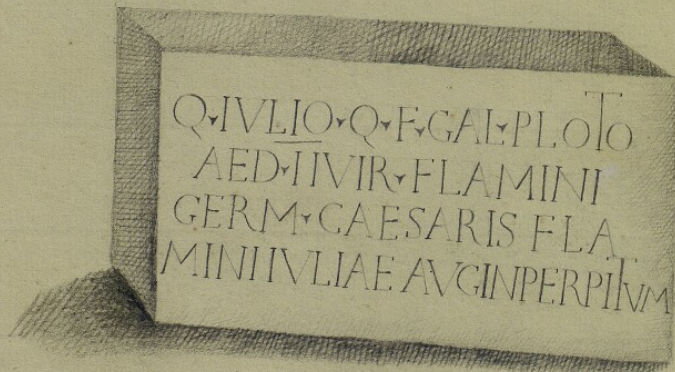 Q▾IVLIO▾Q▾F▾GAL▾PLOTO
AED▾IIVIR▾FLAMINI
GERM▾CAESARIS FLA
MINI IVLIAE AVGINPERPITVM